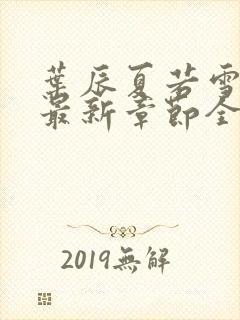 葉辰夏若雪
最新章節全
2019無解